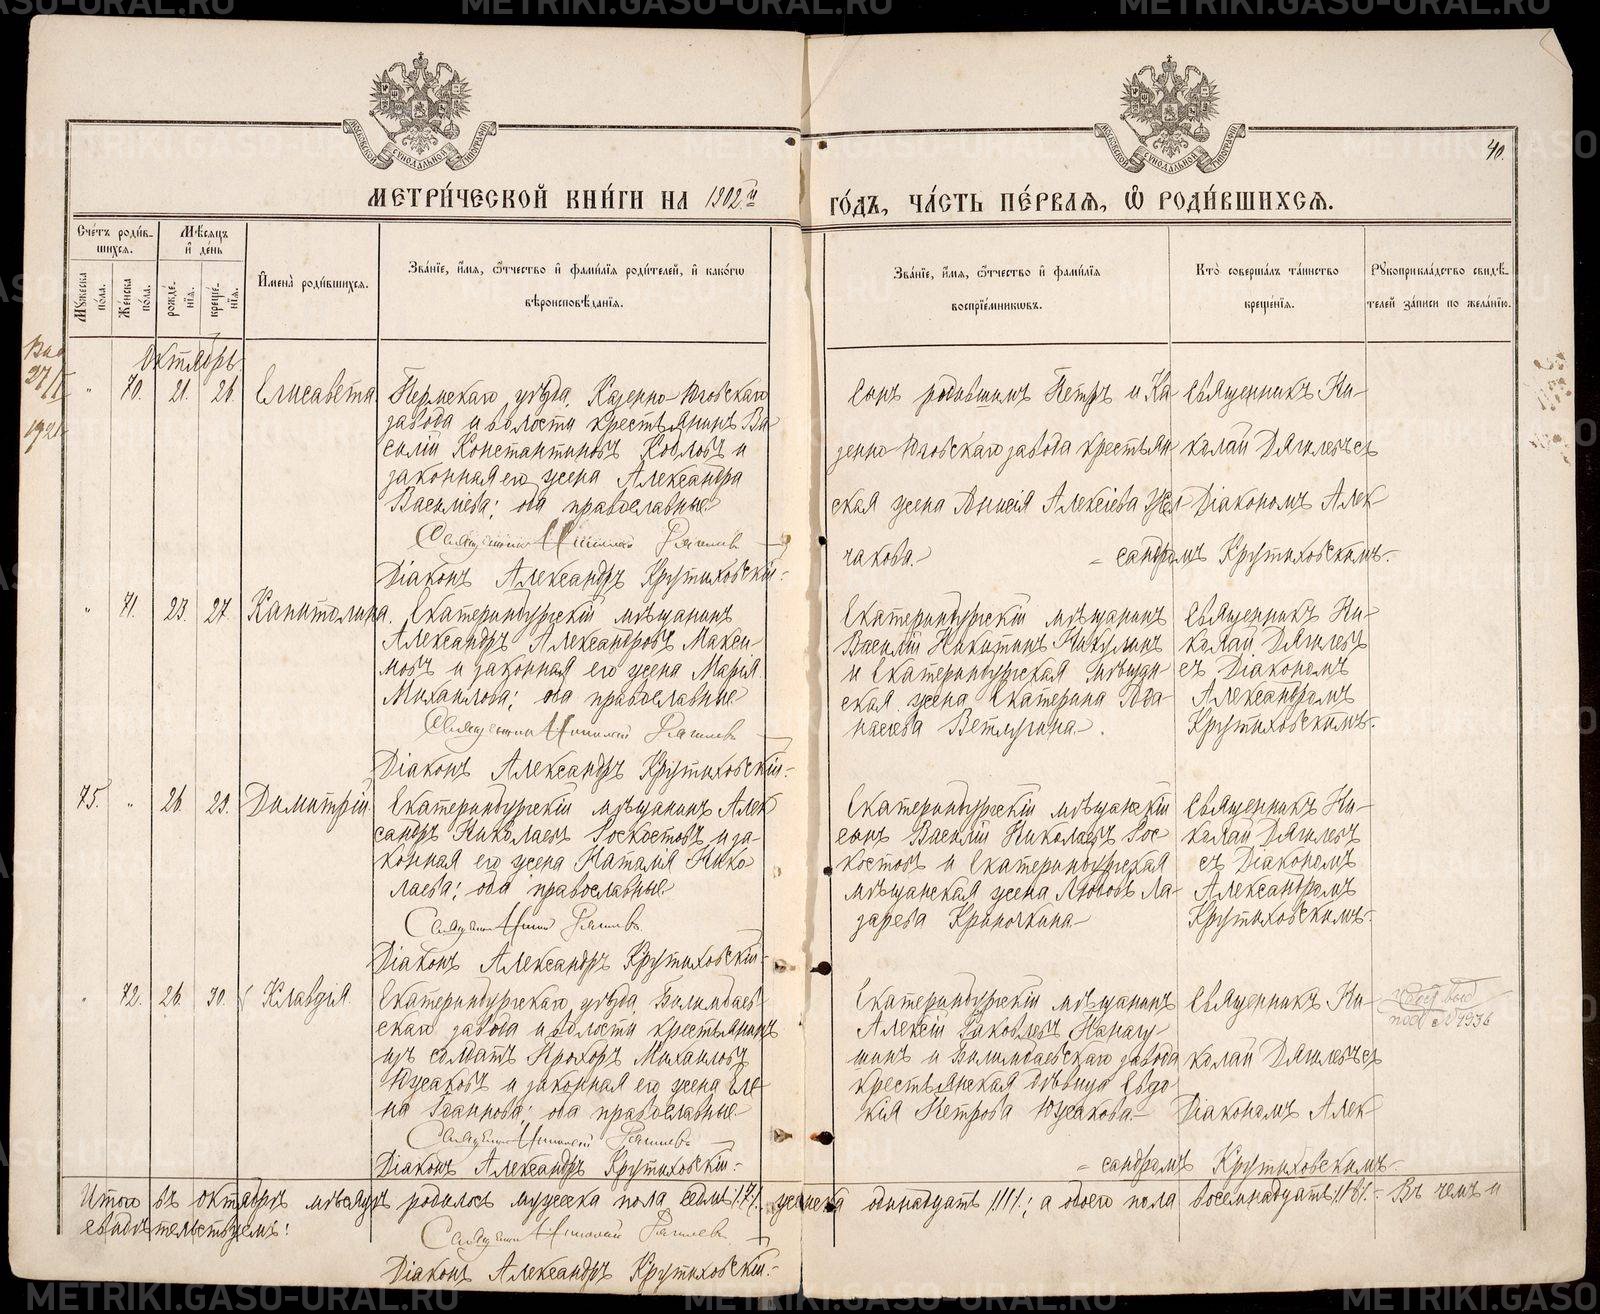 METRIKI.GASO-URAL.RU
МЕТРИ́ЧЕСКОЙ КНИ́ГИ НА 1902 й
ГО́ДЪ, ЧА́СТЬ ПЕ́РВАЯ, Ѽ РОДИ́ВШИХСЯ.
40.
Сче́тъ роди́в-
шихся.
Мѣ́сяцъ
и҆ де́нь
Мꙋжеска
по́ла.
Же́нска
по́ла.
рожде́-
нїя.
креще́-
нїя.
И҆мена̀ роди́вшихся.
Зва́нїе, и҆́мя, ѻ҆́тчество и҆ фами́лїя роди́телей, и҆ како́гѡ
вѣроисповѣ́данїя.
Зва́нїе, и҆́мя, ѻ҆́тчество и҆ фами́лїя
воспрїе́мникѡвъ.
Кто̀ соверша́лъ та́инство
креще́нїя.
Рꙋкоприкла́дство свидѣ́-
телей за́писи по жела́нїю.
27/
192
Октябрь.
" 70. 21. 26. Елисавета
Пермскаго уѣзда, Казенно-Юговскаго
завода и волости крестьянинъ Ва
силій Константиновъ Козловъ и
законная его жена Александра
Васильева; оба православные
Священникъ Николай Дягилевъ
Діаконъ Александръ Крутиховскій.
Сынъ родившимъ Петръ и Ка
зенно-Юговскаго завода крестьян
ская жена Анисія Алексіева
чакова.
Священникъ Ни-
колай Дягилевъ съ
Діакономъ Алек
= сандромъ Крутиховскимъ.
" 71. 23. 27. Капитолина.
Екатеринбургскій мѣщанинъ
Александръ Александровъ Макси-
мовъ и законная его жена Марія
Михаилова; оба православные
Священникъ Николай Дягилевъ
Діаконъ Александръ Крутиховскій.
Екатеринбургскій мѣщанинъ
Василій Никитинъ Никулинъ
и Екатеринбургская мѣщан
ская жена Екатерина
Ветлугина.
Священникъ Ни-
колай Дягилевъ
съ Діакономъ
Александромъ
Крутиховскимъ.
75. " 26. 29. Димитрій
Екатеринбургскій мѣщанинъ Алек
сандръ Николаевъ Роскостовъ и за-
конная его жена Наталія Нико
лаева; оба православные
Священникъ Николай Дягилевъ
Діаконъ Александръ Крутиховскій
Екатеринбургскій мѣщанскій
сынъ Василій Николаевъ Рос
костовъ и Екатеринбургская
мѣщанская жена Любовь Ла-
зарева Криночкина
Священникъ Ни-
колай Дягилевъ
съ Діакономъ
Александромъ
Крутиховскимъ
" 72. 26. 30. Клавдія.
Екатеринбургскаго уѣзда, Билимбаев
скаго завода и волости крестьянинъ
изъ солдатъ Прохоръ Михаиловъ
Южаковъ и законная его жена Еле
на Іоаннова; оба православные
Священникъ Николай Дягилевъ
Діаконъ Александръ Крутиховскій.
Екатеринбургскій мѣщанинъ
Алексій Яковлевъ
шинъ и Билимбаевскаго завода
крестьянская дѣвица Евдо
кія Петрова Южакова.
Священникъ Ни-
колай Дягилевъ съ
Діакономъ Алек
= сандромъ Крутиховскимъ
выд
под № 1936
Итого въ октябрѣ мѣсяцѣ родилось мужеска пола семь /7/, женска одиннадцать /11/; а обоего пола восемнадцать /18/. Въ чемъ и
свидѣтельствуемъ:
Священникъ Николай Дягилевъ
Діаконъ Александръ Крутиховскій.